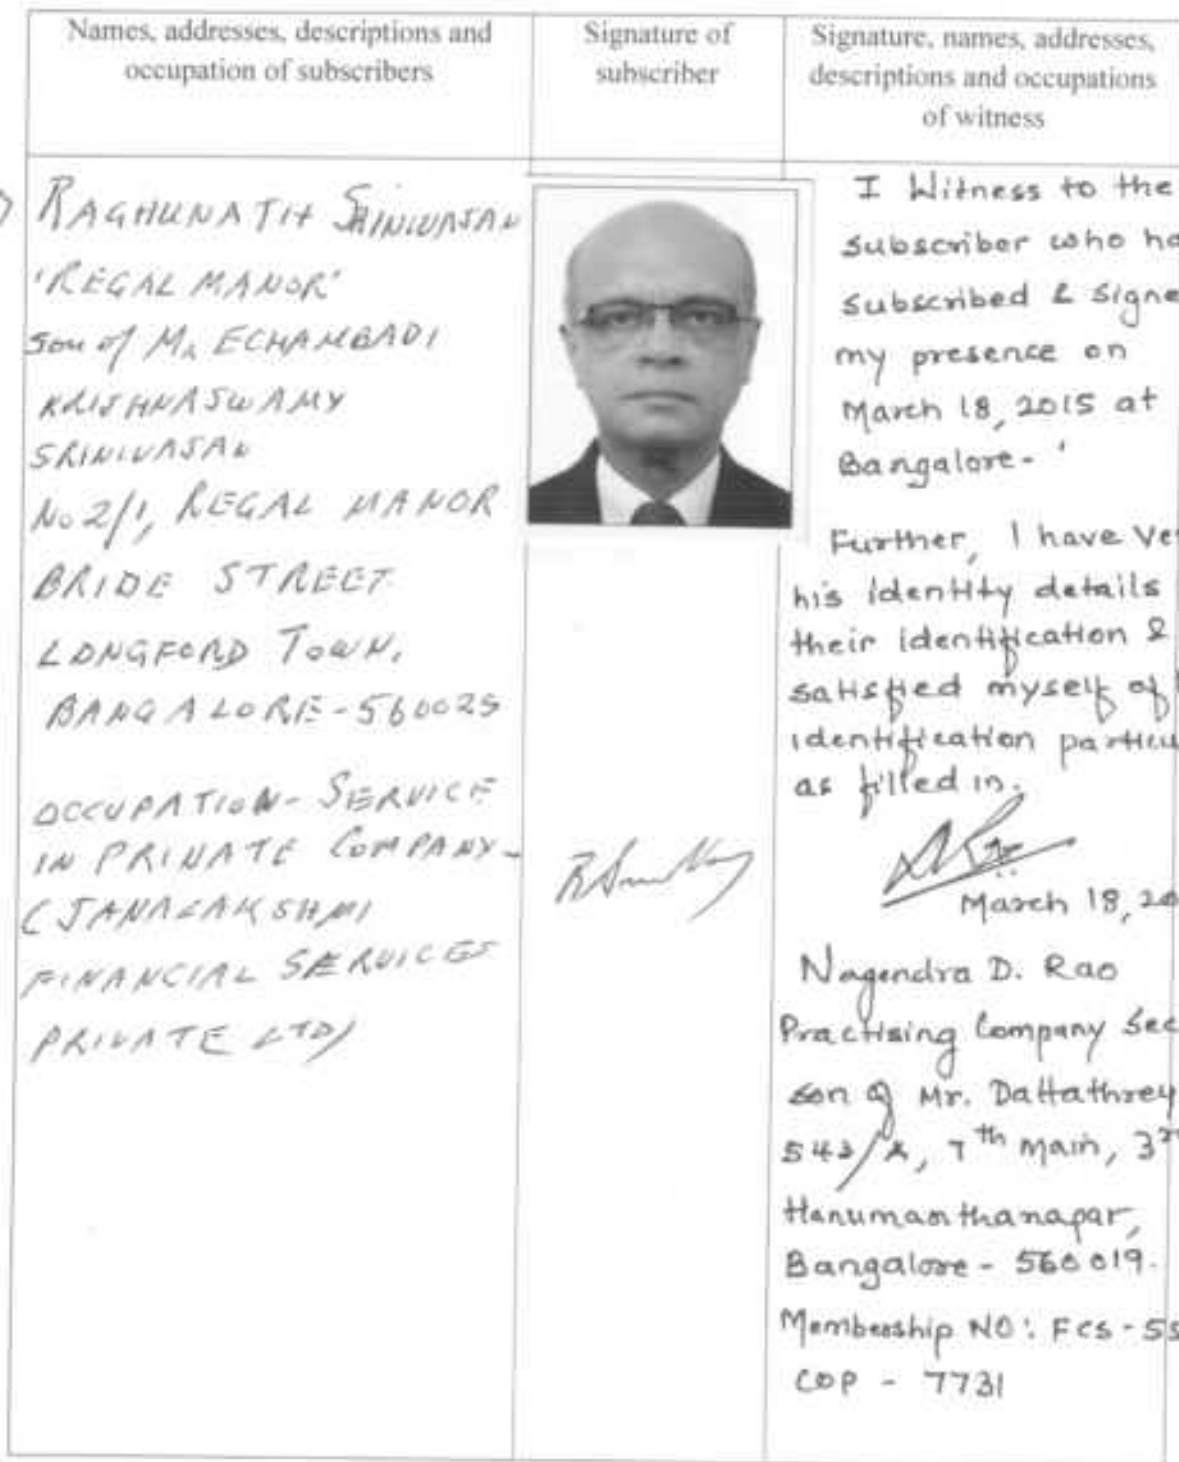 Names, addresses, descriptions and
occupation of subscribers
Signature of
subscriber
Signature, names, addresses,
descriptions and occupations
of witness
RAGHUNATH SRINIVASAN
'REGAL MANOR'
son of Mr ECHAMBADI
KRISHNASWAMY
SRINIVASAN
No 2/1, REGAL MANOR
BRIDE STREET
LONGFORD TOWN,
BANGALORE-560025
OCCUPATION- SERVICE
IN PRIVATE COMPANY-
(JANALAKSHMI
FINANCIAL SERVICES
PRIVATE LTD)
I Witness to the
subscriber who ha
subscribed & signe
my presence on
March 18, 2015 at
Bangalore-
Further, I have Ve
his identity details
their identification &
satisfied myself of
identification particu
as filled in.
March 18, 20
Nagendra D. Rao
Practising Company Sec
son of Mr. Dattathrey
7th Main, 3r
Hanumanthanagar,
Bangalore - 560019.
Membership NO: Fcs - 55
COP - 7731